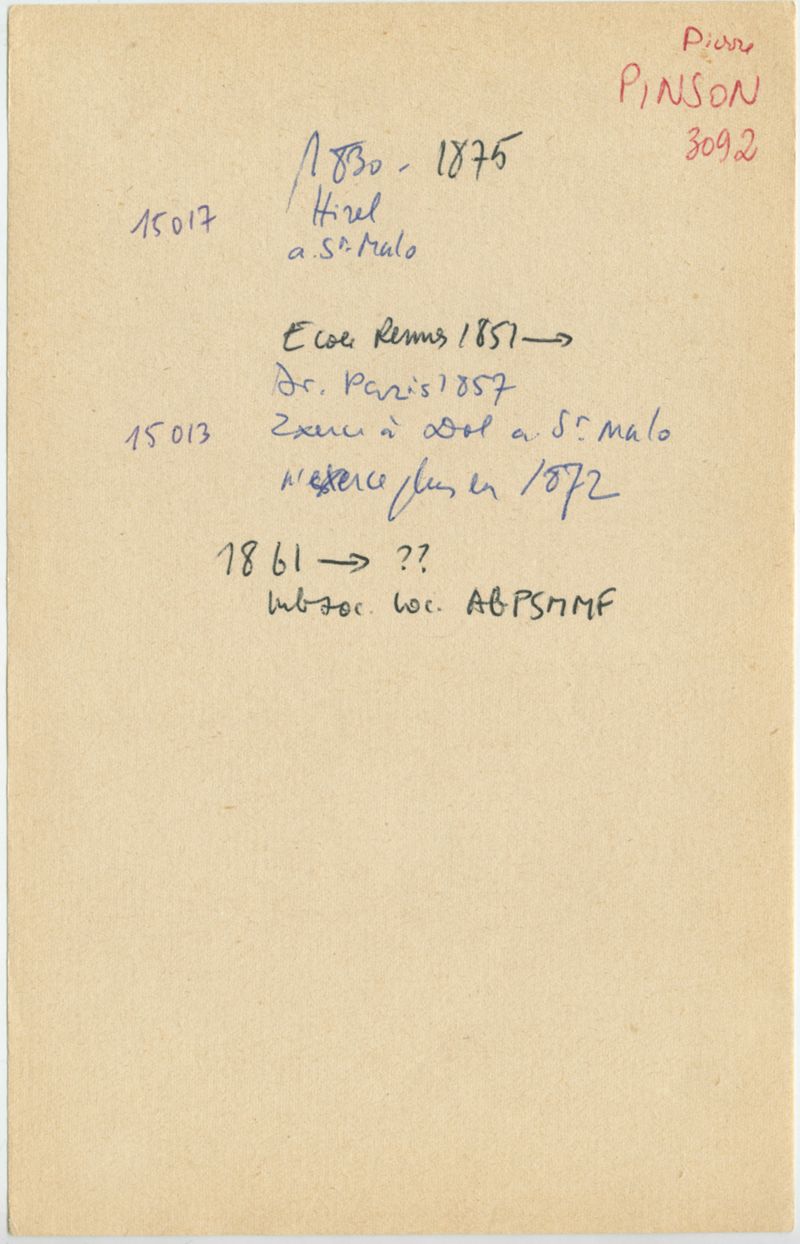 Pierre
PINSON
3092
1830 - 1875
15017 Hirel
a. St Malo
Ecole Rennes 1851 →
Dr. Paris 1857
15013 Exerce à Dol a. St Malo
n'exerce plus en 1872
1861 → ??
loc. ABPSMMF